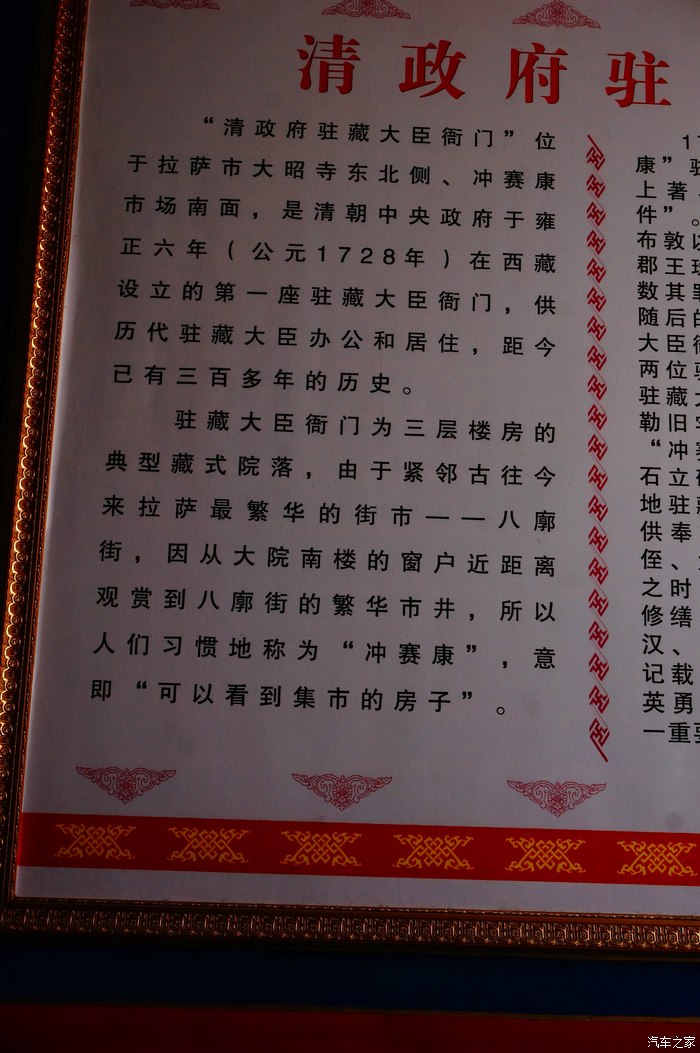 清政府驻
“清政府驻藏大臣衙门”位
于拉萨市大昭寺东北侧、冲赛康
市场南面，是清朝中央政府于雍
正六年（公元1728年）在西藏
设立的第一座驻藏大臣衙门，供
历代驻藏大臣办公和居住，距今
已有三百多年的历史。
驻藏大臣衙门为三层楼房的
典型藏式院落，由于紧邻古往今
来拉萨最繁华的街市——八廓
街，因从大院南楼的窗户近距离
观赏到八廓街的繁华市井，所以
人们习惯地称为“冲赛康”，意
即“可以看到集市的房子”。
17
康”驻
上著
件”。
布敦以
郡王
数其
随后的
大臣衙
两位驻
驻藏大
勒旧
“冲赛
石立
地驻藏
供奉
侄、
之时
修缮
汉、
记载
英勇
一重要
汽车之家